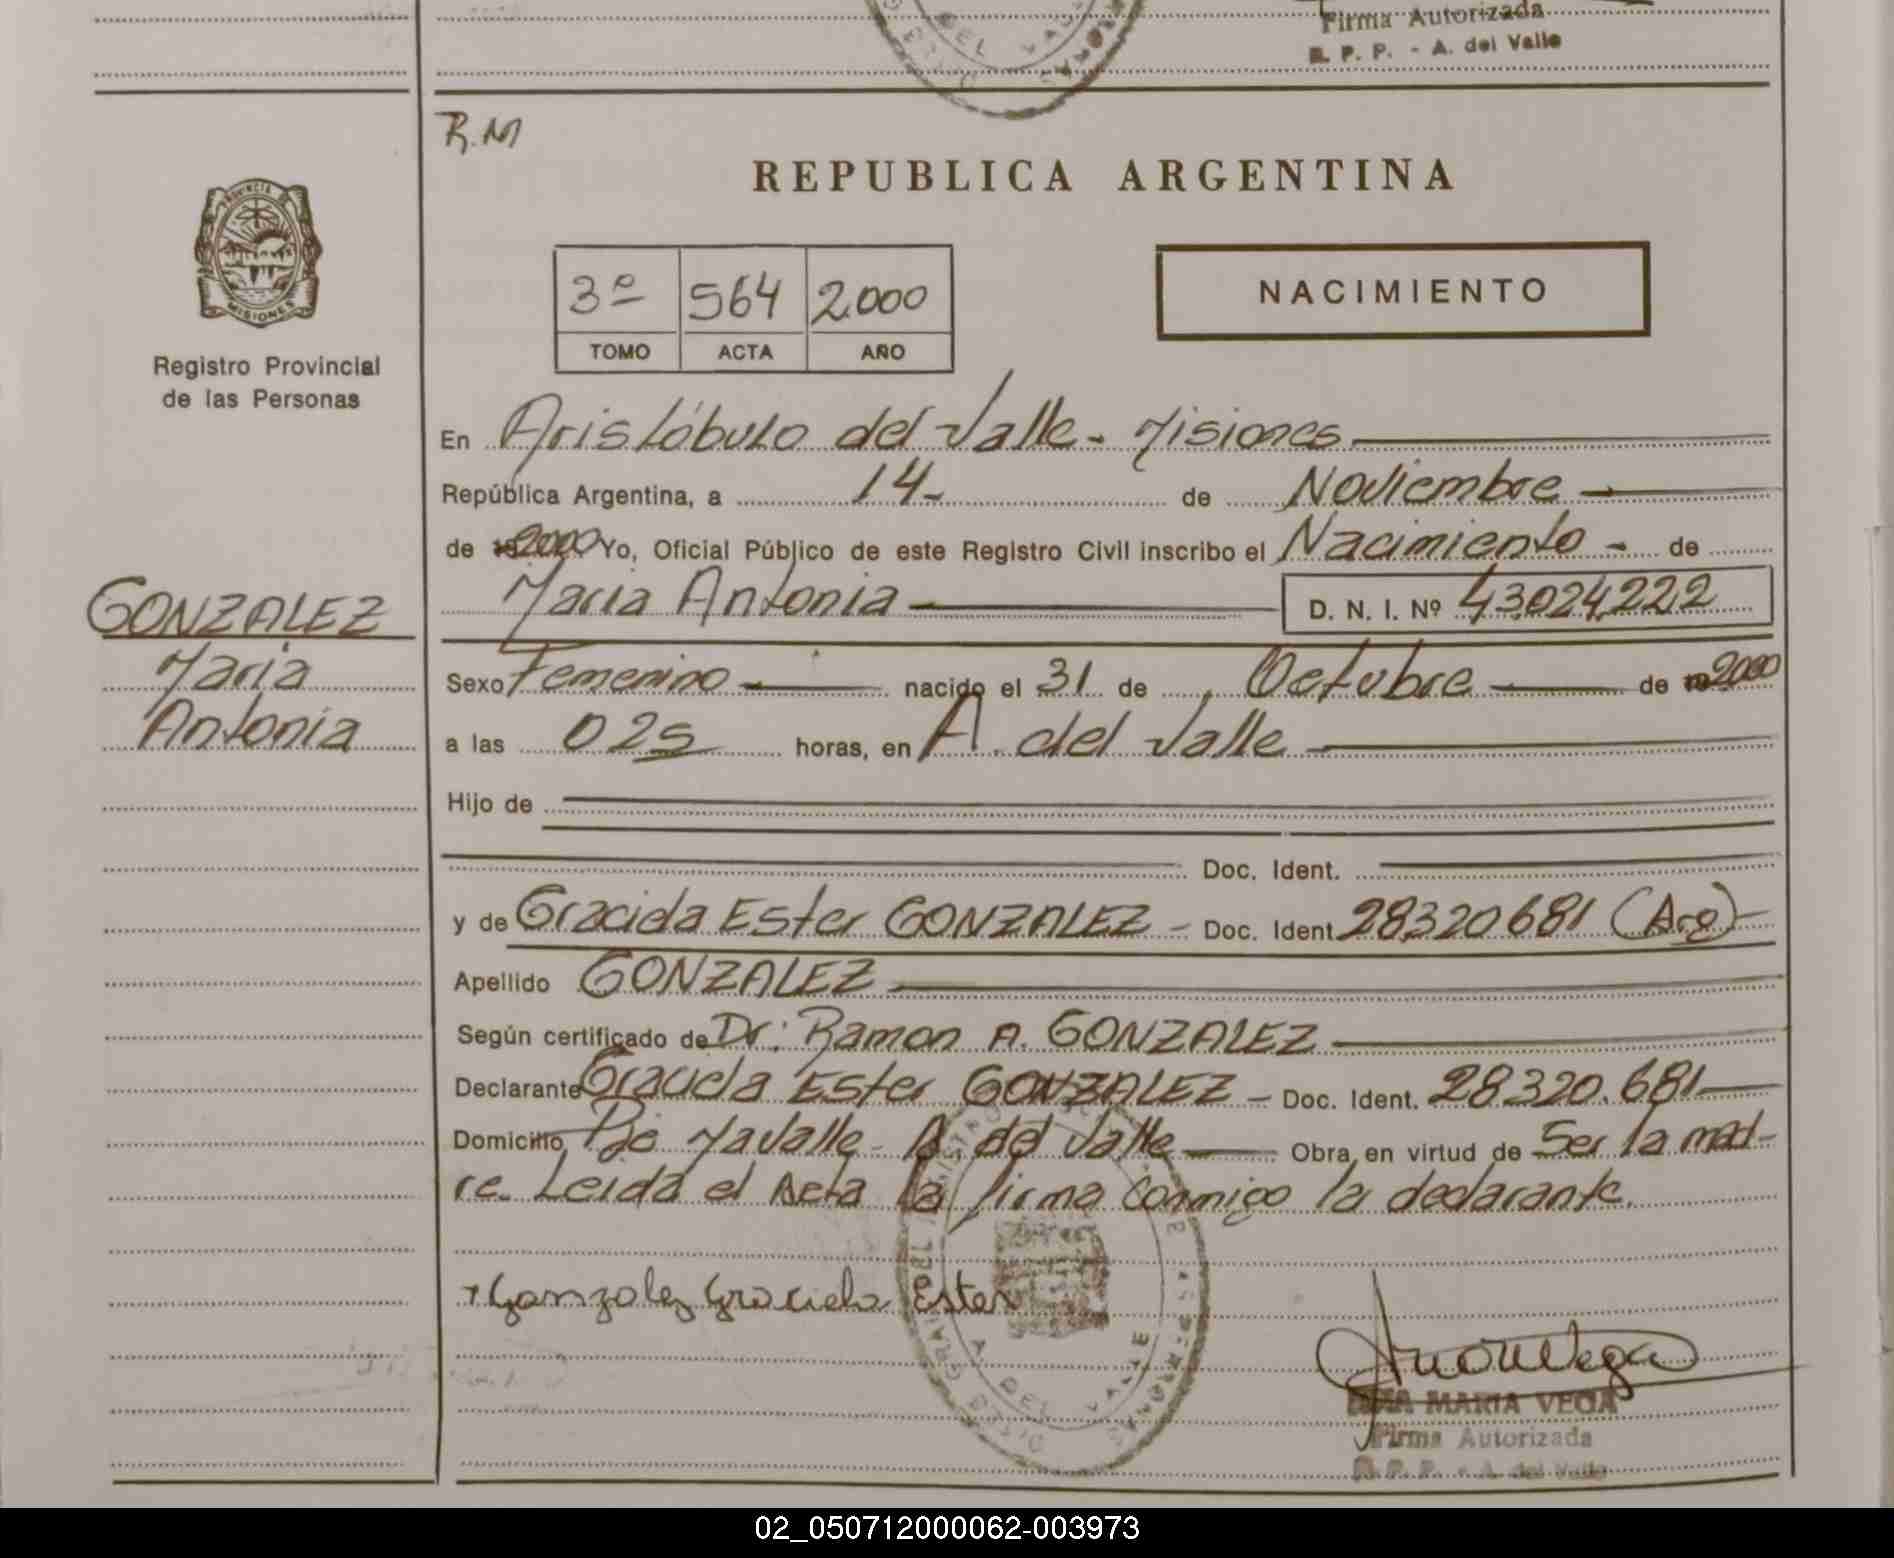 Firma Autorizada
R. P. P. - A. del Valle
DEL VALLE
R.M
REPUBLICA ARGENTINA
PROVINCIA DE
MISIONES
3º 564 2.000
TOMO ACTA AÑO
NACIMIENTO
Registro Provincial
de las Personas
En Aristóbulo del Valle - Misiones
República Argentina, a 14- de Noviembre
de 2000 Yo, Oficial Público de este Registro Civil inscribo el Nacimiento - de
Maria Antonia D. N. I. Nº 43.024.222
GONZALEZ
Maria
Antonia
Sexo Femenino nacido el 31 de Octubre de 2000
a las 02s horas, en A. del Valle
Hijo de
Doc. Ident.
y de Graciela Ester GONZALEZ - Doc. Ident 28320681 (Arg)
Apellido GONZALEZ
Según certificado de Dr: Ramon A. GONZALEZ
Declarante Graciela Ester GONZALEZ - Doc. Ident. 28320.681
Domicilio Bo Yavalle - A. del Valle Obra en virtud de Ser la mad-
re. Leida el Acta la firma conmigo la declarante.
Gonzalez Graciela Ester
A. DEL VALLE
MARIA VEGA
Firma Autorizada
R. P. P. - A. del Valle
02_050712000062-003973